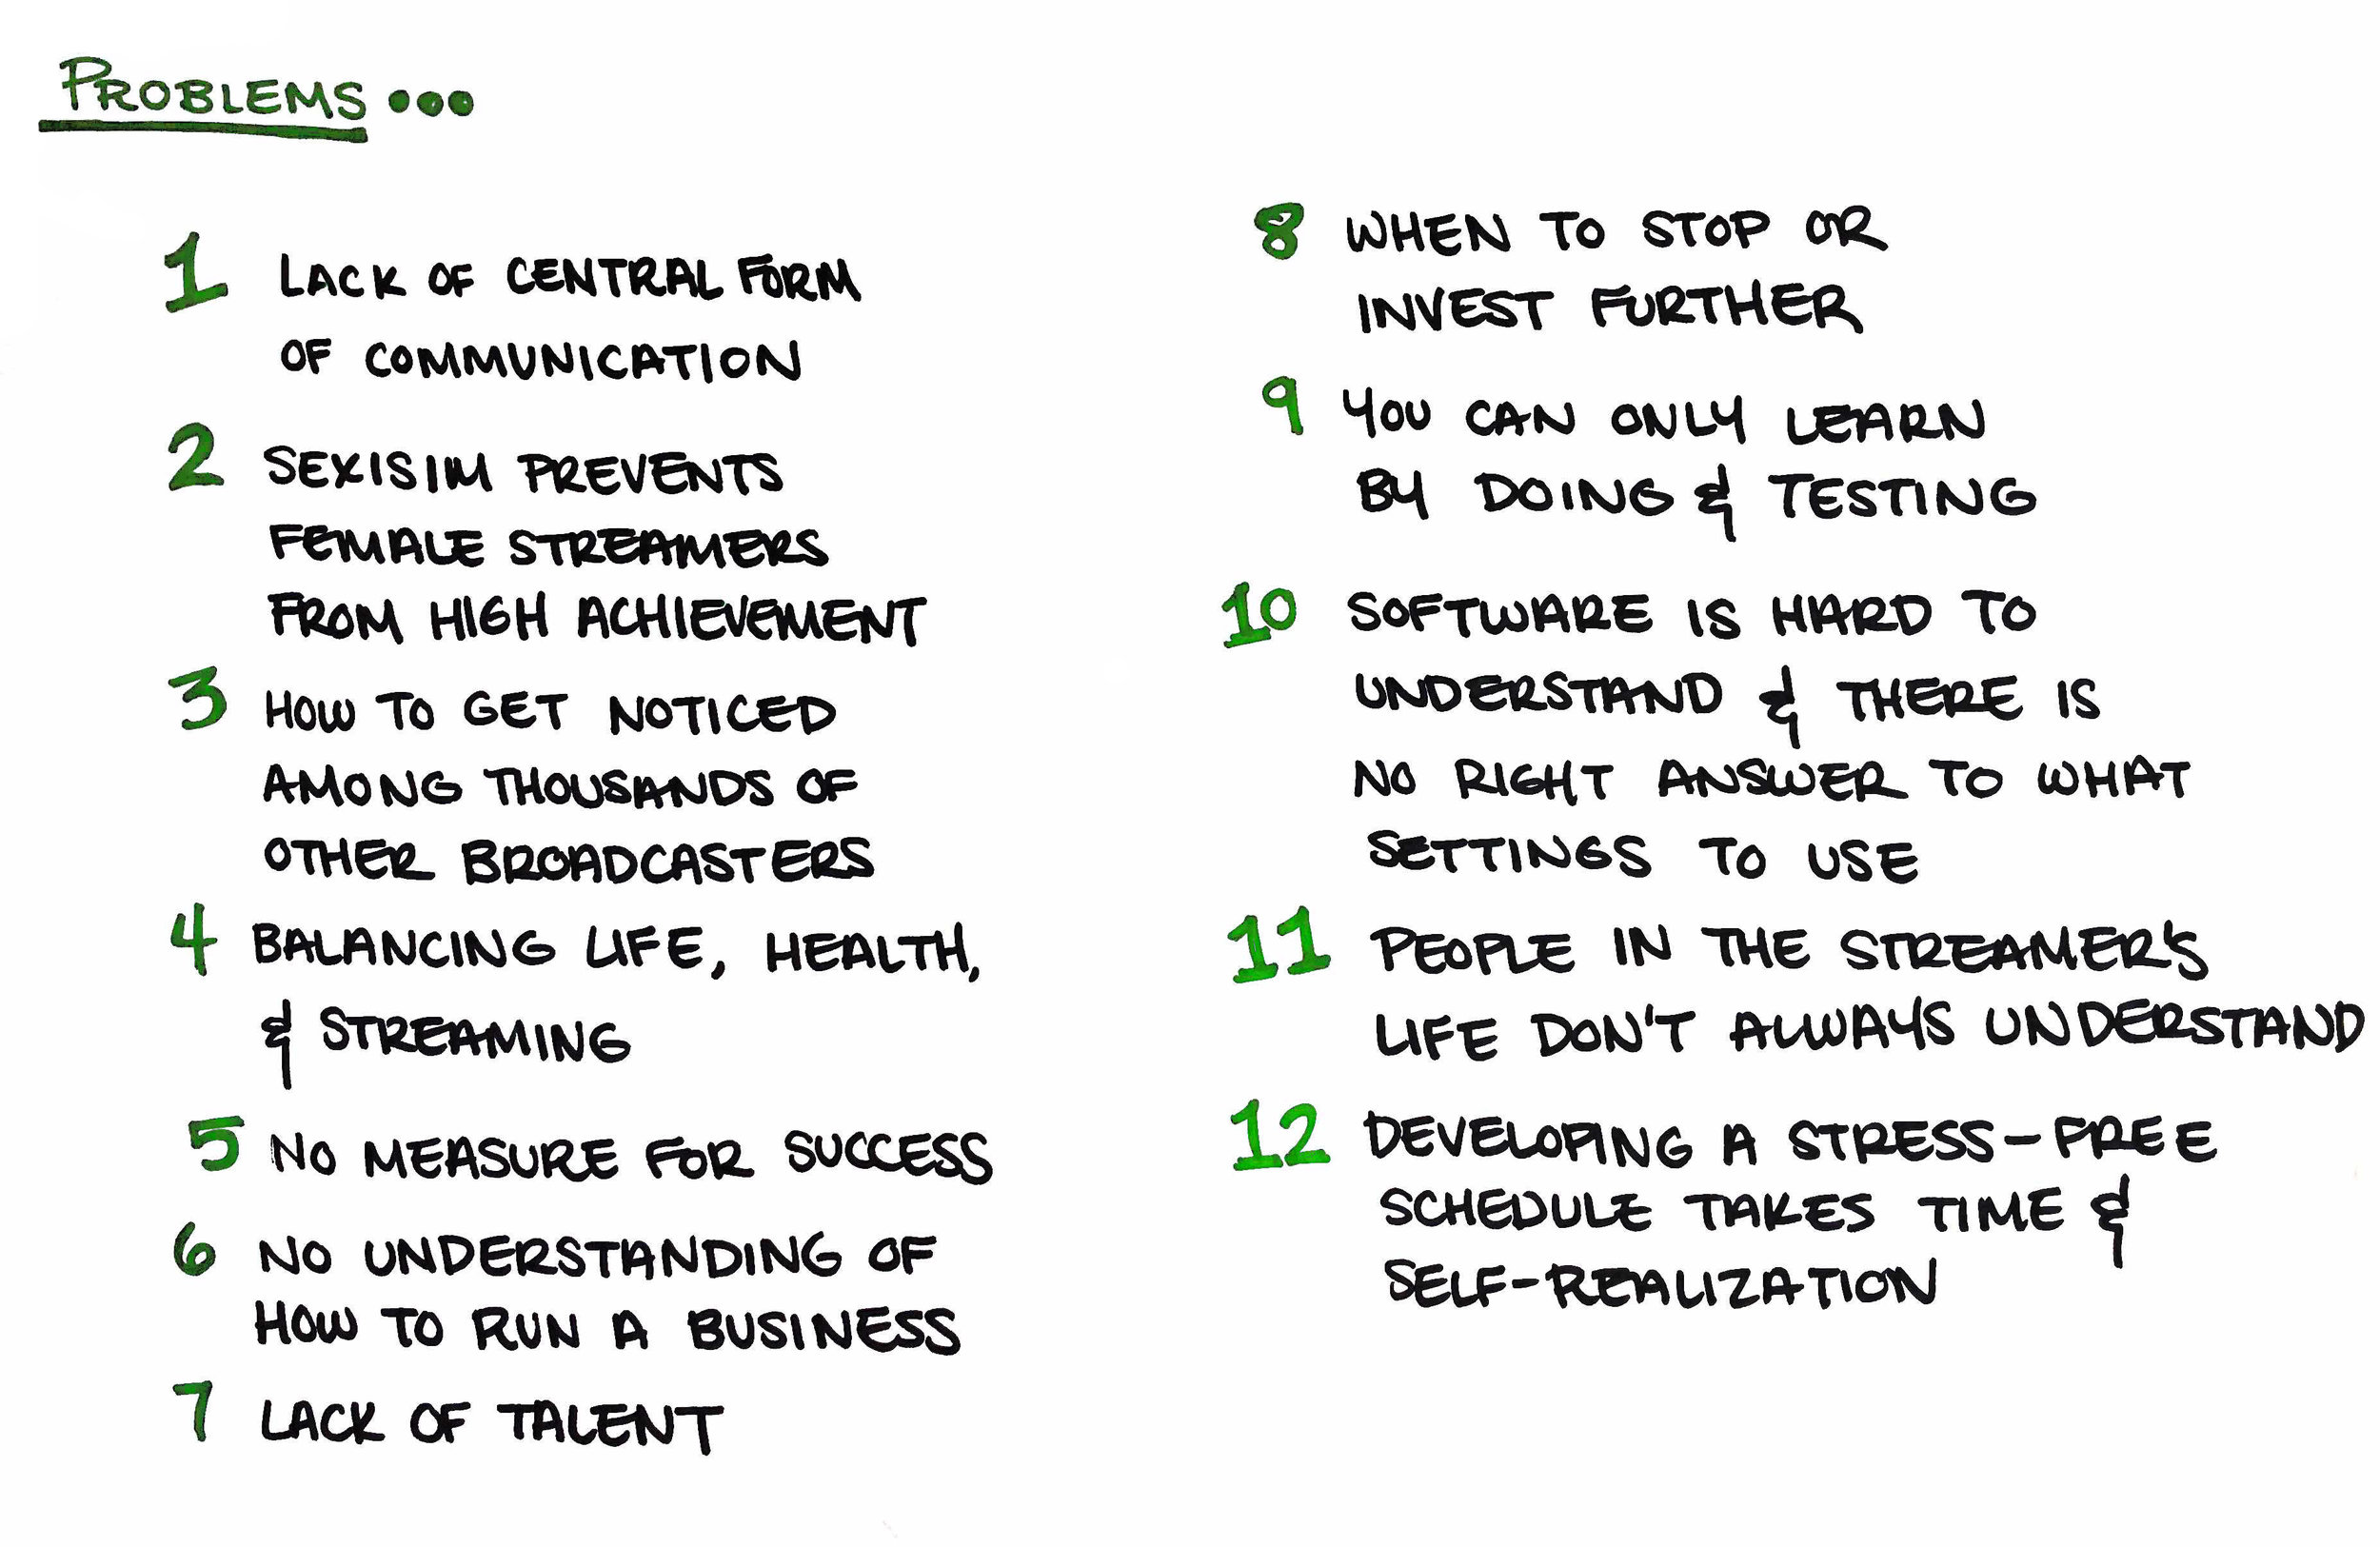 PROBLEMS •••
1 LACK OF CENTRAL FORM
OF COMMUNICATION
2 SEXISIM PREVENTS
FEMALE STREAMERS
FROM HIGH ACHIEVEMENT
3 HOW TO GET NOTICED
AMONG THOUSANDS OF
OTHER BROADCASTERS
4 BALANCING LIFE, HEALTH,
& STREAMING
5 NO MEASURE FOR SUCCESS
6 NO UNDERSTANDING OF
HOW TO RUN A BUSINESS
7 LACK OF TALENT
8 WHEN TO STOP OR
INVEST FURTHER
9 YOU CAN ONLY LEARN
BY DOING & TESTING
10 SOFTWARE IS HARD TO
UNDERSTAND & THERE IS
NO RIGHT ANSWER TO WHAT
SETTINGS TO USE
11 PEOPLE IN THE STREAMER'S
LIFE DON'T ALWAYS UNDERSTAND
12 DEVELOPING A STRESS-FREE
SCHEDULE TAKES TIME &
SELF-REALIZATION